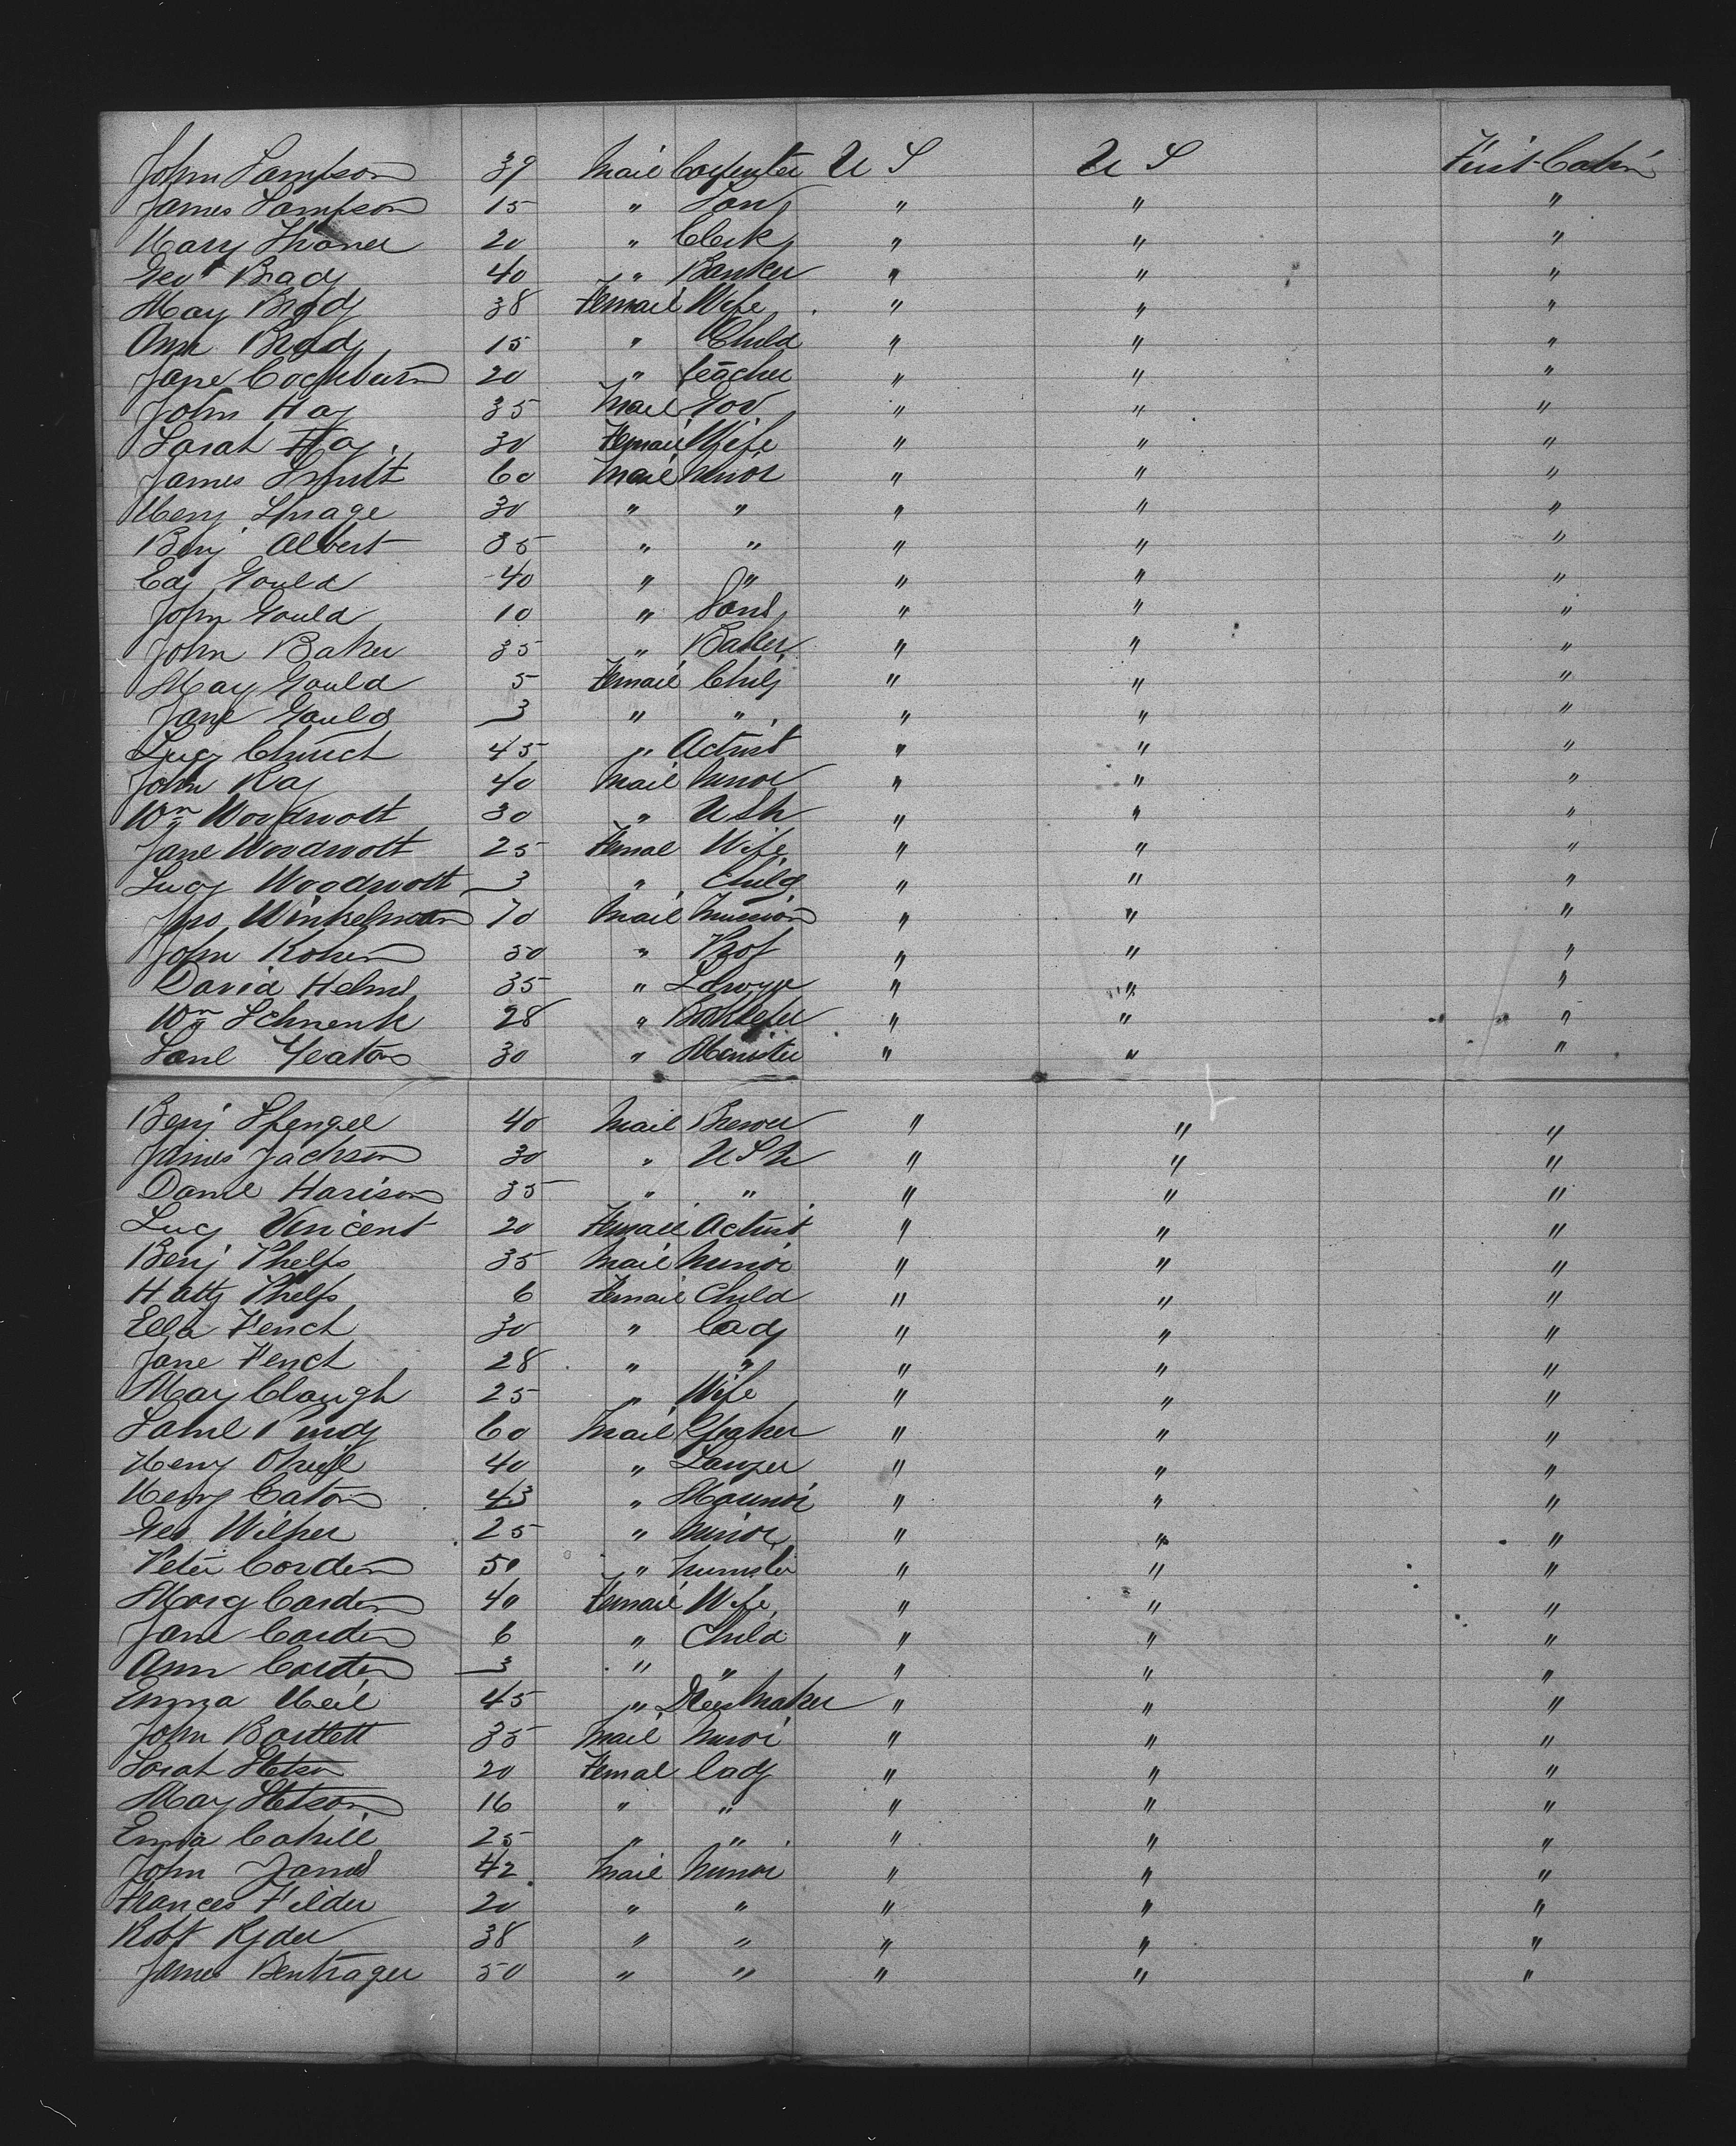 John Sampson 39 Mail Carpenter U S U S First Cabin
James Sampson 15 " Son " " "
Harry 20 " Clerk " " "
Geo Brady 40 " Banker " " "
May Brady 38 Femail Wife " " "
Ann Brad 15 " Child " " "
Jane Cochburn 20 " teacher " " "
John Hay 35 Mail Gov " " "
Sarah Hay 30 Femail Wife " " "
James 60 Mail Minor " " "
Henry 30 " " " " "
Benj Albert 35 " " " " "
Ed Gould 40 " " " " "
John Gould 10 " " " "
John Baker 35 " Baker " " "
May Gould 5 Femail Child " " "
Jane Gould 3 " " " " "
Lucy Church 45 " Actrist " " "
John Ray 40 Mail Minor " " "
Wm Woodwott 30 " U S N " " "
Jane Woodwott 25 Femal Wife " " "
Lucy Woodwott 3 " Child " " "
Jno Winkelman 70 Mail " " "
John Kohen 50 " Prof " " "
David Helms 35 " " " "
Wm Schnenk 28 " " " "
Saml Yeaton 30 " " " "
Benj Spengel 40 Mail Brewer " " "
James Jackson 30 " U S N " " "
Danl Harison 35 " " " " "
Lucy Vincent 20 Femail Actrist " " "
Benj Phelps 35 Mail Minor " " "
Hatty Phelps 6 Femail Child " " "
Ella Fench 30 " Lady " " "
Jane Fench 28 " " " " "
May Clough 25 " Wife " " "
Saml Purdy 60 Mail " " "
Henry 40 " Lawyer " " "
Henry Caton 43 " " " "
Geo Wilker 25 " Minor " " "
Peter Corden 50 " " " "
Marg Corden 40 Femail Wife " " "
Jane Corden 6 " Child " " "
Ann Corden 3 " " " " "
Emma 45 " Dress Maker " " "
John Bartlett 35 Mail Minor " " "
Sarah Stetson 20 Femal Lady " " "
May Stetson 16 " " " " "
Emma Cahill 25 " " " " "
John James 42 Mail Minor " " "
Frances Filder 20 " " " " "
Robt Ryder 38 " " " " "
James Bentrager 50 " " " " "